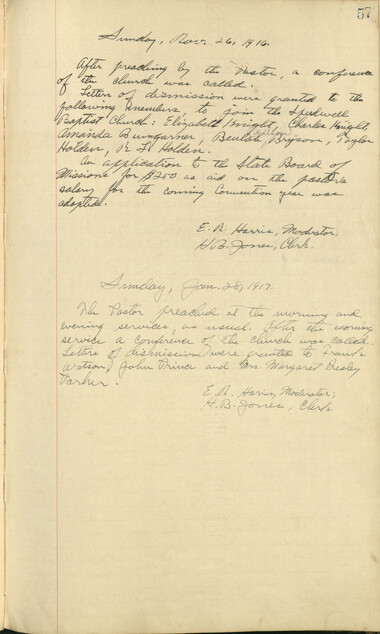 57
Sunday, Nov. 26, 1916.
After preaching by the Pastor, a conference
of the church was called.
Letters of dismission were granted to the
following members to join the Speedwell
Baptist Church: Elizabeth Knight, Charles Knight,
Amanda Bumgarner, Beulah Bryson, Taylor
Holden, R. F. Holden.
An application to the State Board of
Missions for $250 as aid on the pastor's
salary for the coming Convention year was
adopted.
E. R. Harris, Moderator;
H. B. Jones, Clerk.
Sunday, Jan. 28, 1917.
The Pastor preached at the morning and
evening services, as usual. After the morning
service a conference of the church was called.
Letters of dismission were granted to Frank
Watson, John Prince and Mrs. Margaret Presley
Parker.
E. R. Harris, Moderator;
H. B. Jones, Clerk